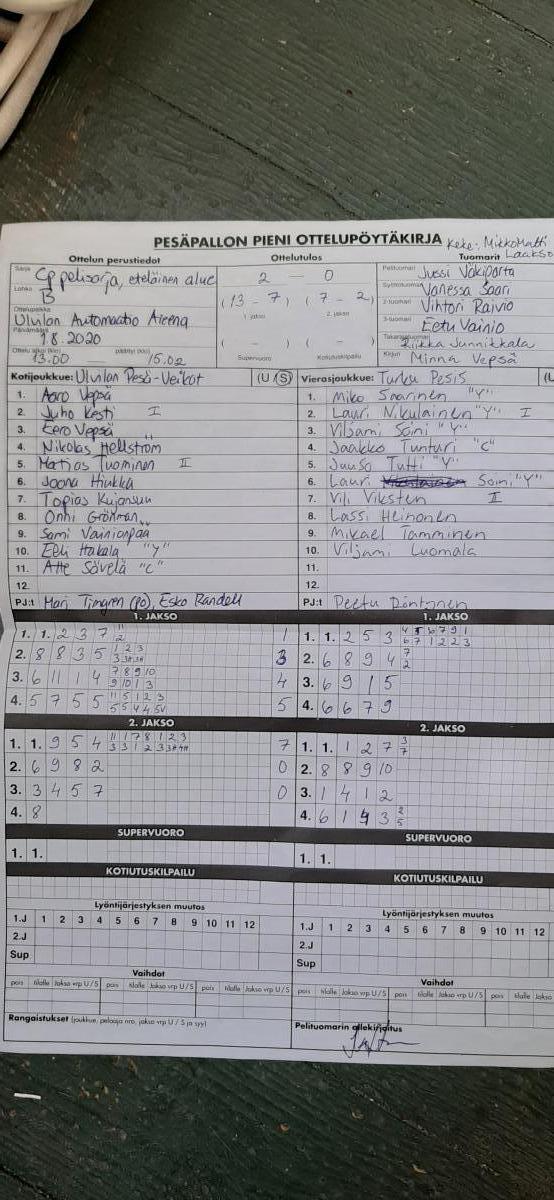 PESÄPALLON PIENI OTTELUPÖYTÄKIRJA Keke: MikkoMatti
Laakso
Ottelun perustiedot
Ottelutulos
Tuomarit
Sarja
Cp pelisarja, eteläinen alue
2 - 0
Pelituomari
Jussi Väkiparta
Lohko
B
(13 - 7) (7 - 2)
1. jakso
2. jakso
Syöttötuomari
Vanessa Saari
Ottelupaikka
Ulvilan Automaatio Areena
2-tuomari
Vihtori Raivio
3-tuomari
Eetu Vainio
Päivämäärä
1.8.2020
Takarajatuomari
Riikka Junnikkala
Ottelu alkoi (klo)
päättyi (klo)
13.00
15.02
Supervuoro
Kotiutuskilpailu
Kirjuri
Minna Vepsä
Kotijoukkue: Ulvilan Pesä-Veikot (U/S)
1. Aaro Vepsä
2. Juho Kesti I
3. Eero Vepsä
4. Nikolas Hellström
5. Matias Tuominen II
6. Joona Hiukka
7. Topias Kujansuu
8. Onni Grönman
9. Sami Vainionpää
10. Eeli Hakala "Y"
11. Atte Sävelä "C"
12.
PJ:t Mari Timgren (PJ), Esko Randell
Vierasjoukkue: Turku Pesis
1. Miko Saarinen "Y"
2. Lauri Nikulainen "Y" I
3. Viljami Soini "Y"
4. Jaakko Tunturi "C"
5. Juuso Tutti "Y"
6. Lauri Soini "Y"
7. Vili Viksten II
8. Lassi Heinonen
9. Mikael Tamminen
10. Viljami Luomala
11.
12.
PJ:t Peetu Pöntynen
1. JAKSO
1. 1. 2 3 7 11 2 1
2. 8 8 3 5 3
3. 6 11 1 4 7 8 9 10 9 10 1 3 4
4. 5 7 5 5 11 5 1 2 3 5
2. JAKSO
1. 1. 9 5 4 11 1 7 8 1 2 3 7
2. 6 9 8 2 0
3. 3 4 5 7 0
4. 8
SUPERVUORO
1. 1.
KOTIUTUSKILPAILU
Lyöntijärjestyksen muutos
1.J 1 2 3 4 5 6 7 8 9 10 11 12
2.J
Sup
Vaihdot
pois tilalle Jakso vrp U/S pois tilalle Jakso vrp U/S pois tilalle Jakso vrp U/S
Rangaistukset (joukkue, pelaaja nro, jakso vrp U / S ja syy)
1. JAKSO
1. 1. 2 5 3
2. 6 8 9 4 7 2
3. 6 9 1 5
4. 6 6 7 9
2. JAKSO
1. 1. 1 2 7 3 7
2. 8 8 9 10
3. 1 4 1 2
4. 6 1 4 3 2 5
SUPERVUORO
1. 1.
KOTIUTUSKILPAILU
Lyöntijärjestyksen muutos
1.J 1 2 3 4 5 6 7 8 9 10 11 12
2.J
Sup
Vaihdot
pois tilalle Jakso vrp U/S pois tilalle Jakso vrp U/S pois tilalle Jakso
Pelituomarin allekirjoitus